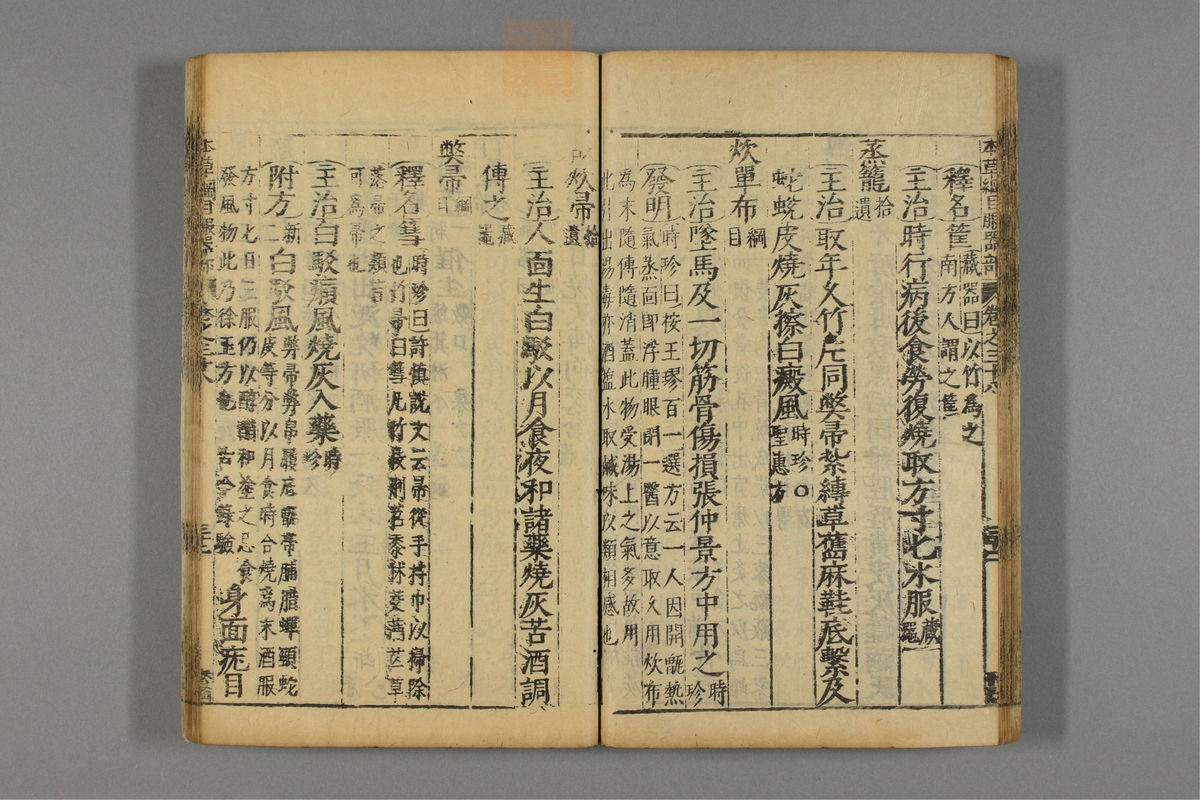 本草綱目服器部 卷之三十八
釋名筐 藏器曰以竹為之
南方人謂之筐
主治時行病後食勞復燒取方寸匕水服 藏器
蒸籠 拾遺
主治取年久竹片同弊帚紮縛草舊麻鞋底繫及
蛇蛻皮燒灰擦白癜風 時珍〇
聖惠方
炊單布 綱目
主治墜馬及一切筋骨傷損張仲景方中用之 時珍
發明 時珍曰按王璆百一選方云一人因開甑熱
氣蒸面即浮腫眼閉一醫以意取久用炊布
為末隨傅隨消蓋此物受湯上之氣多故用
此引出湯毒亦猶鹽水取鹹味以類相感也
炊帚 拾遺
主治人面生白駁以月食夜和諸藥燒灰苦酒調
傅之 藏器
弊帚 綱目
釋名篲 時珍曰許慎說文云帚從手持巾以掃除
也竹帚曰篲凡竹枝荊苕黍秫茭蒲芒草
落帚之類皆
可為帚也
主治白駁癩風燒灰入藥 時珍
附方 新二 白駁風 弊帚弊帛履底甑帶脯腊蟬頸蛇
皮等分以月食時合燒為末酒服
方寸匕日三服仍以醇醋和塗之忌食
發風物此乃徐王方也古今錄驗 身面疣目
本草綱目服器部 卷之三十八